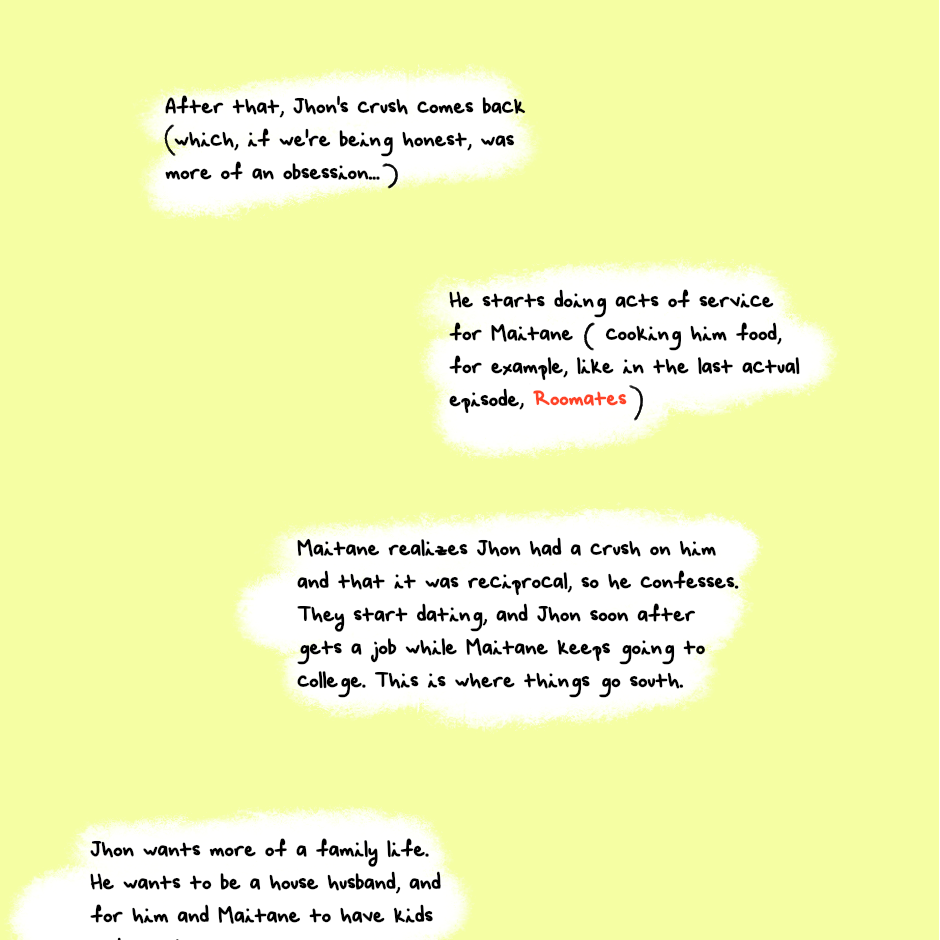 After that, Jhon's crush comes back
(which, if we're being honest, was
more of an obsession...)
He starts doing acts of service
for Maitane ( cooking him food,
for example, like in the last actual
episode, Roomates)
Maitane realizes Jhon had a crush on him
and that it was reciprocal, so he confesses.
They start dating, and Jhon soon after
gets a job while Maitane keeps going to
college. This is where things go south.
Jhon wants more of a family life.
He wants to be a house husband, and
for him and Maitane to have kids